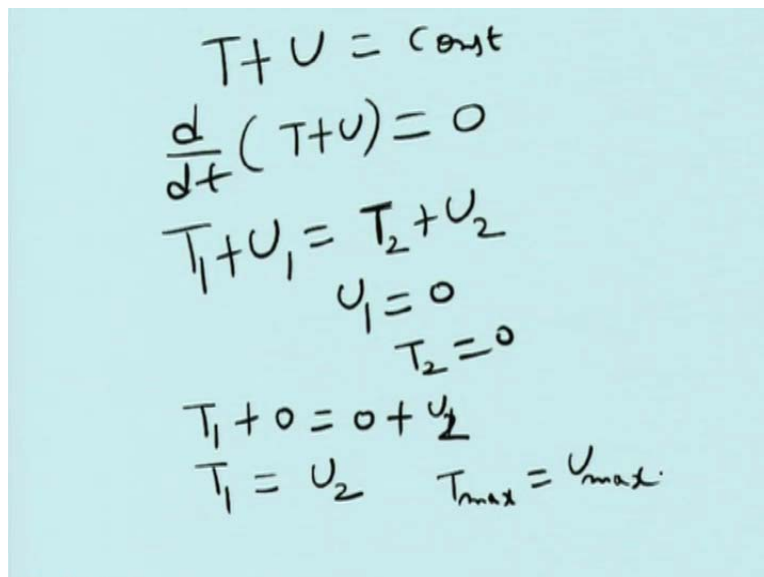 T + U = Const
d/dt ( T+U) = 0
T₁+U₁ = T₂+U₂
U₁ = 0
T₂ = 0
T₁ + 0 = 0 + U₂
T₁ = U₂ Tmax = Umax.